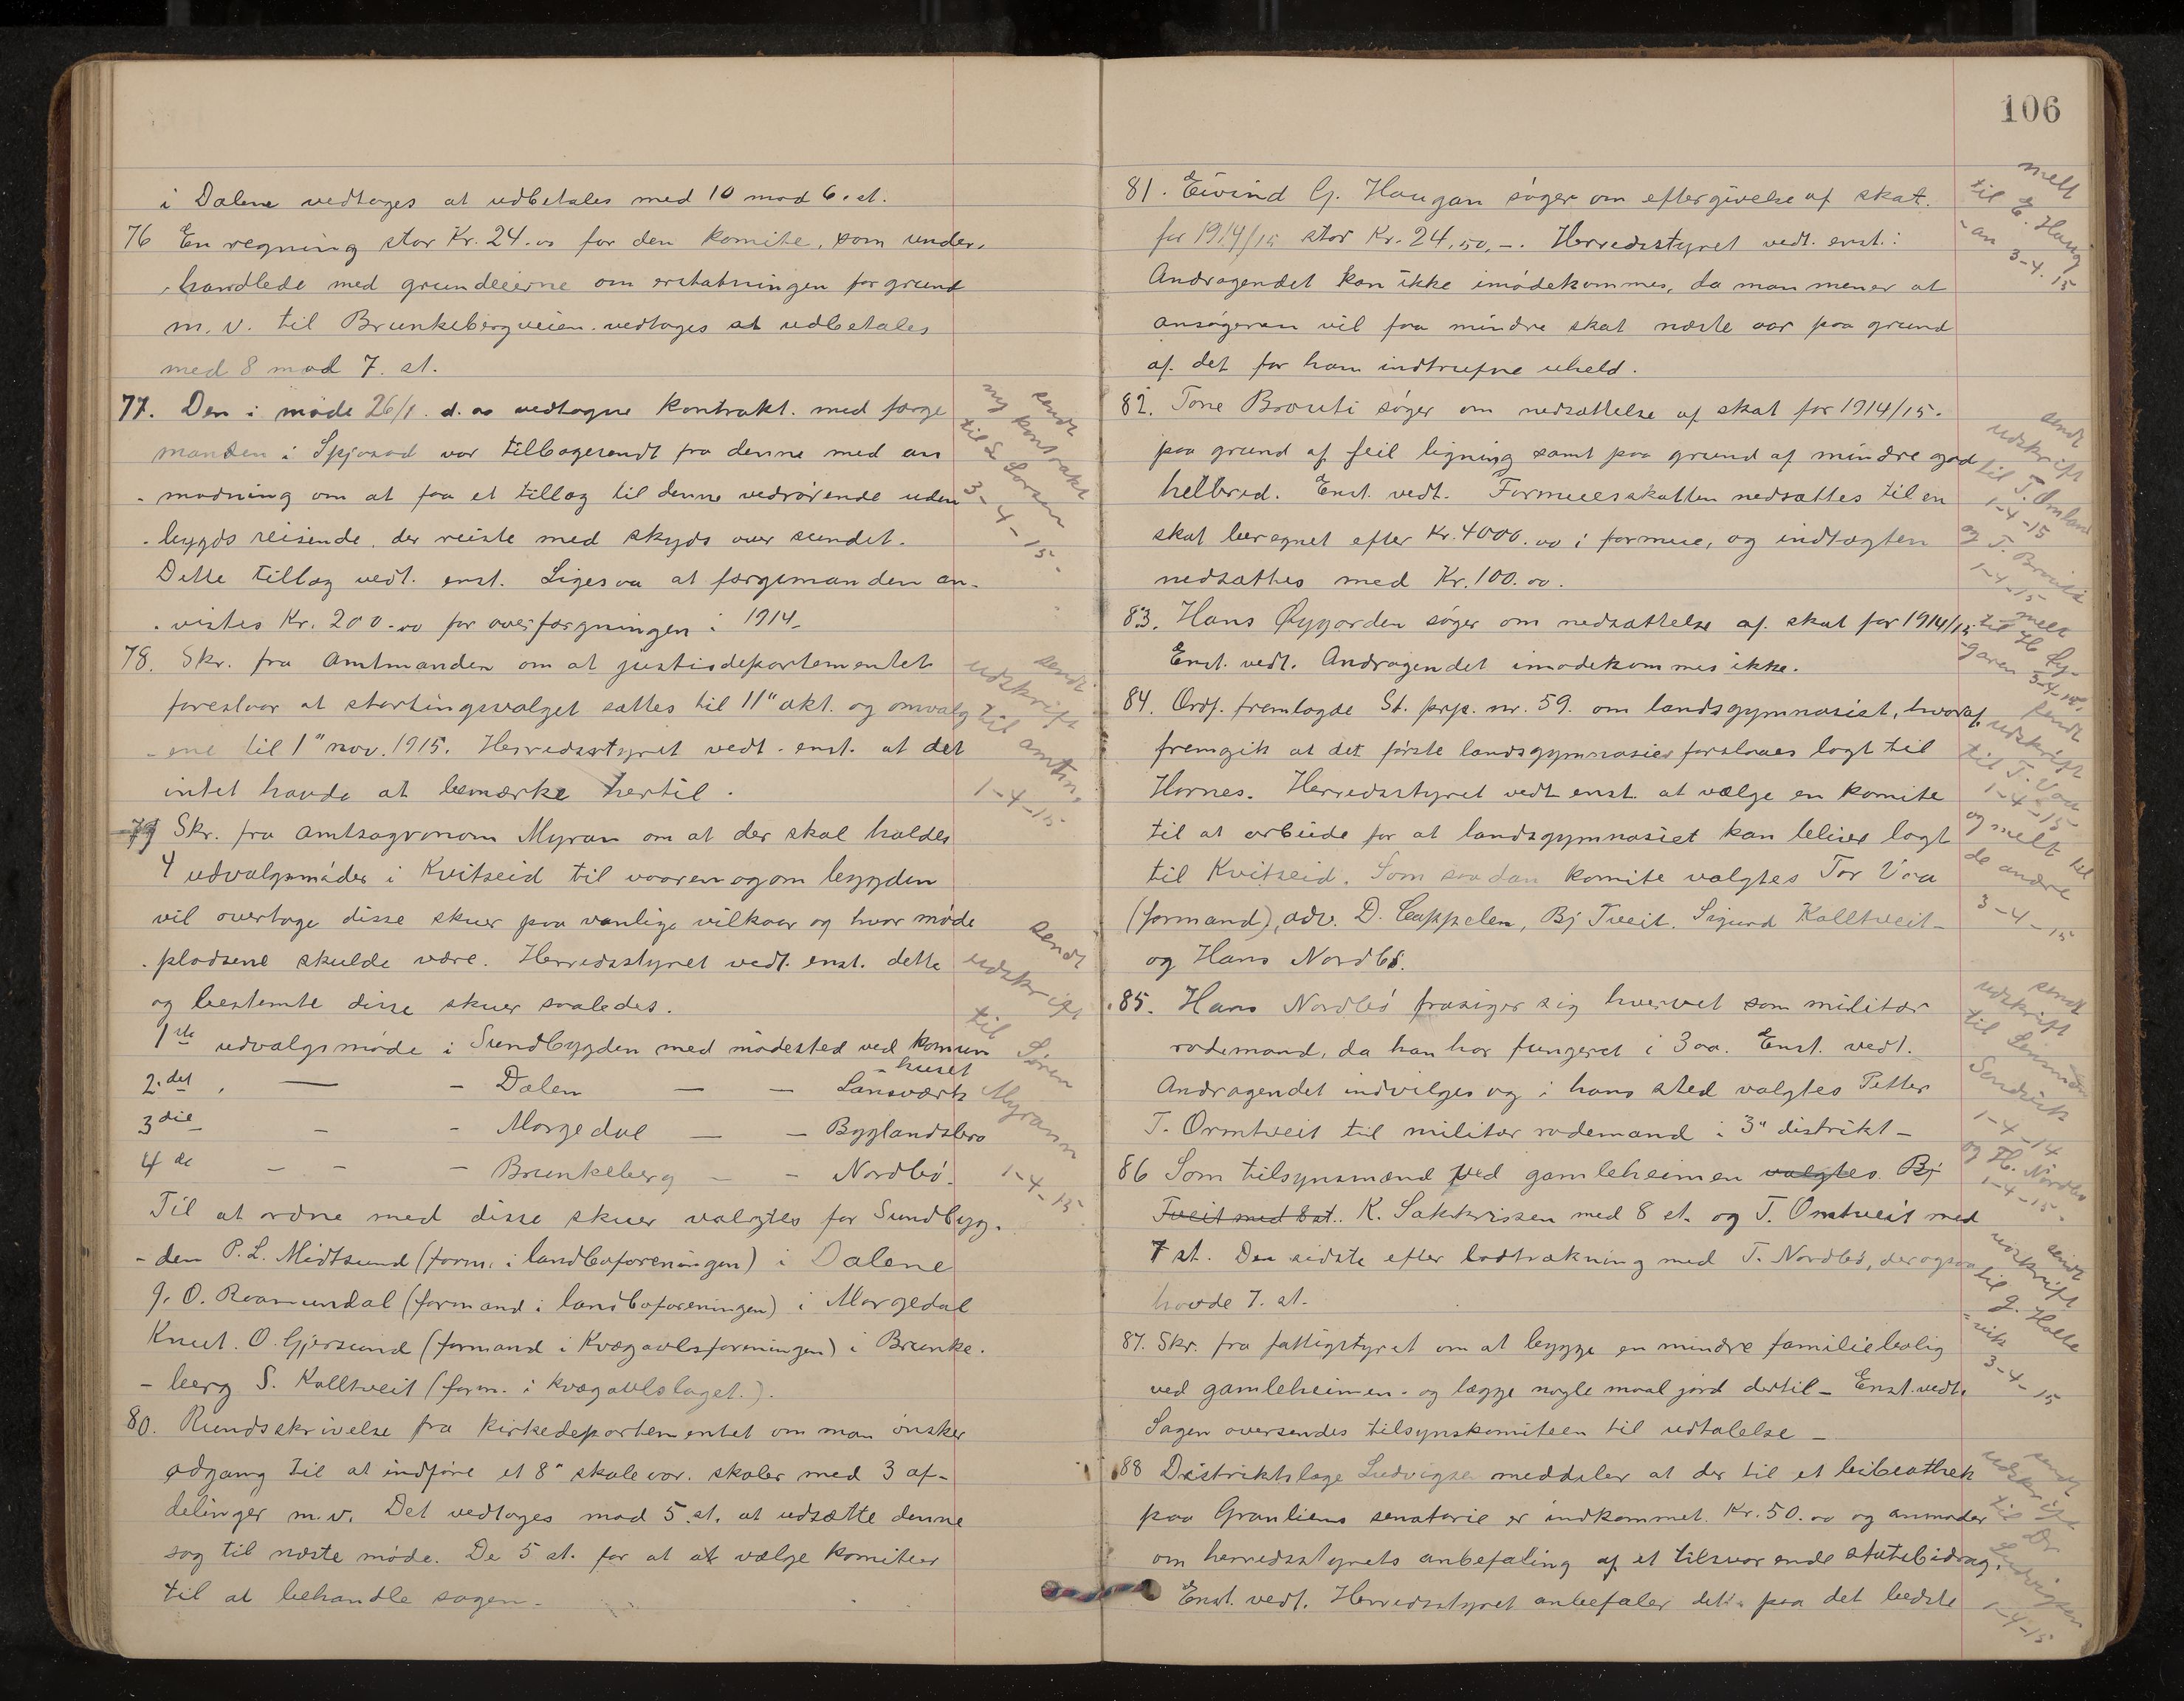 i Dalene vedtoges at udbetales med 10 mod 6. st.
76 En regning stor Kr. 24.00 for den komite, som under-
handlede med grundeierne om erstatningen for grund
m. v. til Brunkebergveien vedtoges at udbetales
med 8 mod 7. st.
77. Den i møde 26/1. d. aa vedtagne kontrakt. med færge
manden i Spjosod var tilbagesendt fra denne med an
- modning om at faa et tillæg til denne vedrørende uden
- bygds reisende, der reiste med skyds over sundet.
Dette tillæg vedt. enst. Ligesaa at færgemanden an-
- vistes Kr. 200.00 for overfærgningen i 1914.
sendt
ny kontrakt
til S. Larsen
3-4-15.
78. Skr. fra Amtmanden om at justisdepartementet
foreslaar at stortingsvalget sættes til 11" okt. og omvalg
- ene til 1" nov. 1915. Herredsstyret vedt. enst. at det
intet havde at bemærke hertil.
sendt
udskrift
til amtm.
1-4-15.
79 Skr. fra amtsagronom Myran om at der skal holdes
4 udvalgsmøder i Kvitseid til vaaren og om bygden
vil overtage disse skuer paa vanlige vilkaar og hvor møde
- pladsene skulde være. Herredsstyret vedt. enst. dette
og bestemte disse skuer saaledes.
1ste udvalgsmøde i Sundbygden med mødested ved komun
- huset
2.det — - Dalen — — Lansværk
3die - - Morgedal — — Byglandsbro
4de - - - Brunkeberg — - Nordbø.
sendt
udskrift
til
Søren
Myrann
1-4-15
Til at ordne med disse skuer valgtes for Sundbyg-
- den P. L. Midtsund (form. i landboforeningen) i Dalene
G. O. Raamundal (formand i landboforeningen) i Morgedal
Knut. O. Gjersund (formand i Kvægavlsforeningen) i Brunke-
- berg S. Kalltveit (form. i kvægavlslaget.).
80. Rundskrivelse fra kirkedepartementet om man ønsker
adgang til at indføre et 8" skoleaar. skoler med 3 af-
delinger m.v. Det vedtoges mod 5. st. at udsætte denne
sag til næste møde. De 5 st. for at at vælge komiteer
til at behandle sagen.
106
81. Eivind G. Haugan søger om eftergivelse af skat.
for 1914/15 stor Kr. 24,50,-. Herredsstyret vedt. enst.:
Andragendet kan ikke imødekommes, da man mener at
ansøgeren vil faa mindre skat næste aar paa grund
af det for ham indtrufne uheld.
melt
til E. Haug
- an
3-4.15
82. Tone Brouti søger om nedsættelse af skat for 1914/15.
paa grund af feil ligning samt paa grund af mindre god
helbred. Enst. vedt. Formuesskatten nedsættes til en
skat beregnet efter Kr. 4000.00 i formue, og indtægten
nedsættes med Kr. 100.00.
sendt
udskrift
til T. Omland
1-4-15
og T. Brouti
1-4-15
83. Hans Øygarden søger om nedsættelse af skat for 1914/15
Enst. vedt. Andragendet imødekommes ikke.
melt
til H. Øy-
garen 3-4-15.
84. Ordf. fremlagde St. prp. nr. 59. om landsgymnasiet, hvoraf
fremgik at det første landsgymnasier foreslaaes lagt til
Hornes. Herredsstyret vedt enst. at vælge en komite
til at arbeide for at landsgymnasiet kan blive lagt
til Kvitseid. Som saadan komite valgtes Tor Vaa
(formand), adv. D. Cappelen, Bj Tveit. Sigurd Kalltveit-
og Hans Nordbø.
sendt
udskrift
til T. Vaa
1-4-15
og melt til
de andre
3-4-15
85. Hans Nordbø frasiger sig hvervet som militær
rodemand, da han har fungeret i 3 aa. Enst. vedt.
Andragendet indvilges og i hans sted valgtes Petter
T. Ormtveit til militær rodemand i 3" distrikt-
sendt
udskrift
til Lensman
1-4-14
og H. Nordbø
1-4-15.
86 Som tilsynsmænd ved gamleheimen valgtes Bj
Tveit med 8 st.. K. Sakkrissen med 8 st. og T. Omtveit med
7 st. Den sidste efter lodtrækning med T. Nordbø, der ogsaa
havde 7. st.
sendt
udskrift
til G. Holte
- vik
3-4-15
87. Skr. fra fattigstyret om at bygge en mindre familiebolig
ved gamleheimen. og lægge nogle maal jord dertil - Enst. vedt.
Sagen oversendes tilsynskomiteen til udtalelse -
88 Distriktslæge Ludvigsen meddeler at der til et bibeothek
paa Granliens senatorie er indkommet. Kr. 50.00 og anmoder
om herredsstyrets anbefaling af et tilsvarende statsbidrag.
Enst. vedt. Herredsstyret anbefaler det paa det bedste
sendt
udskrift
til Dr
Ludvigsen
1-4-15